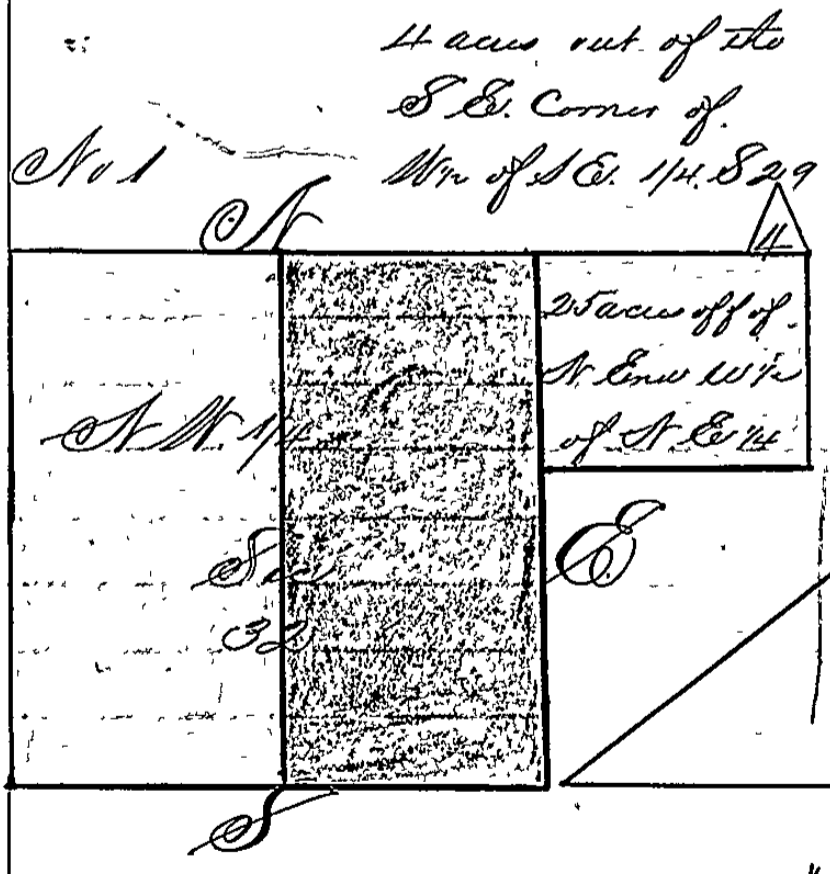 4 acres out of the
S E. Corner of
W½ of S E. 1/4. S 29
No 1
N
4
25 acres off of
N. End W ½
of N E ¼
N W 1/4
Sec
32
E
S